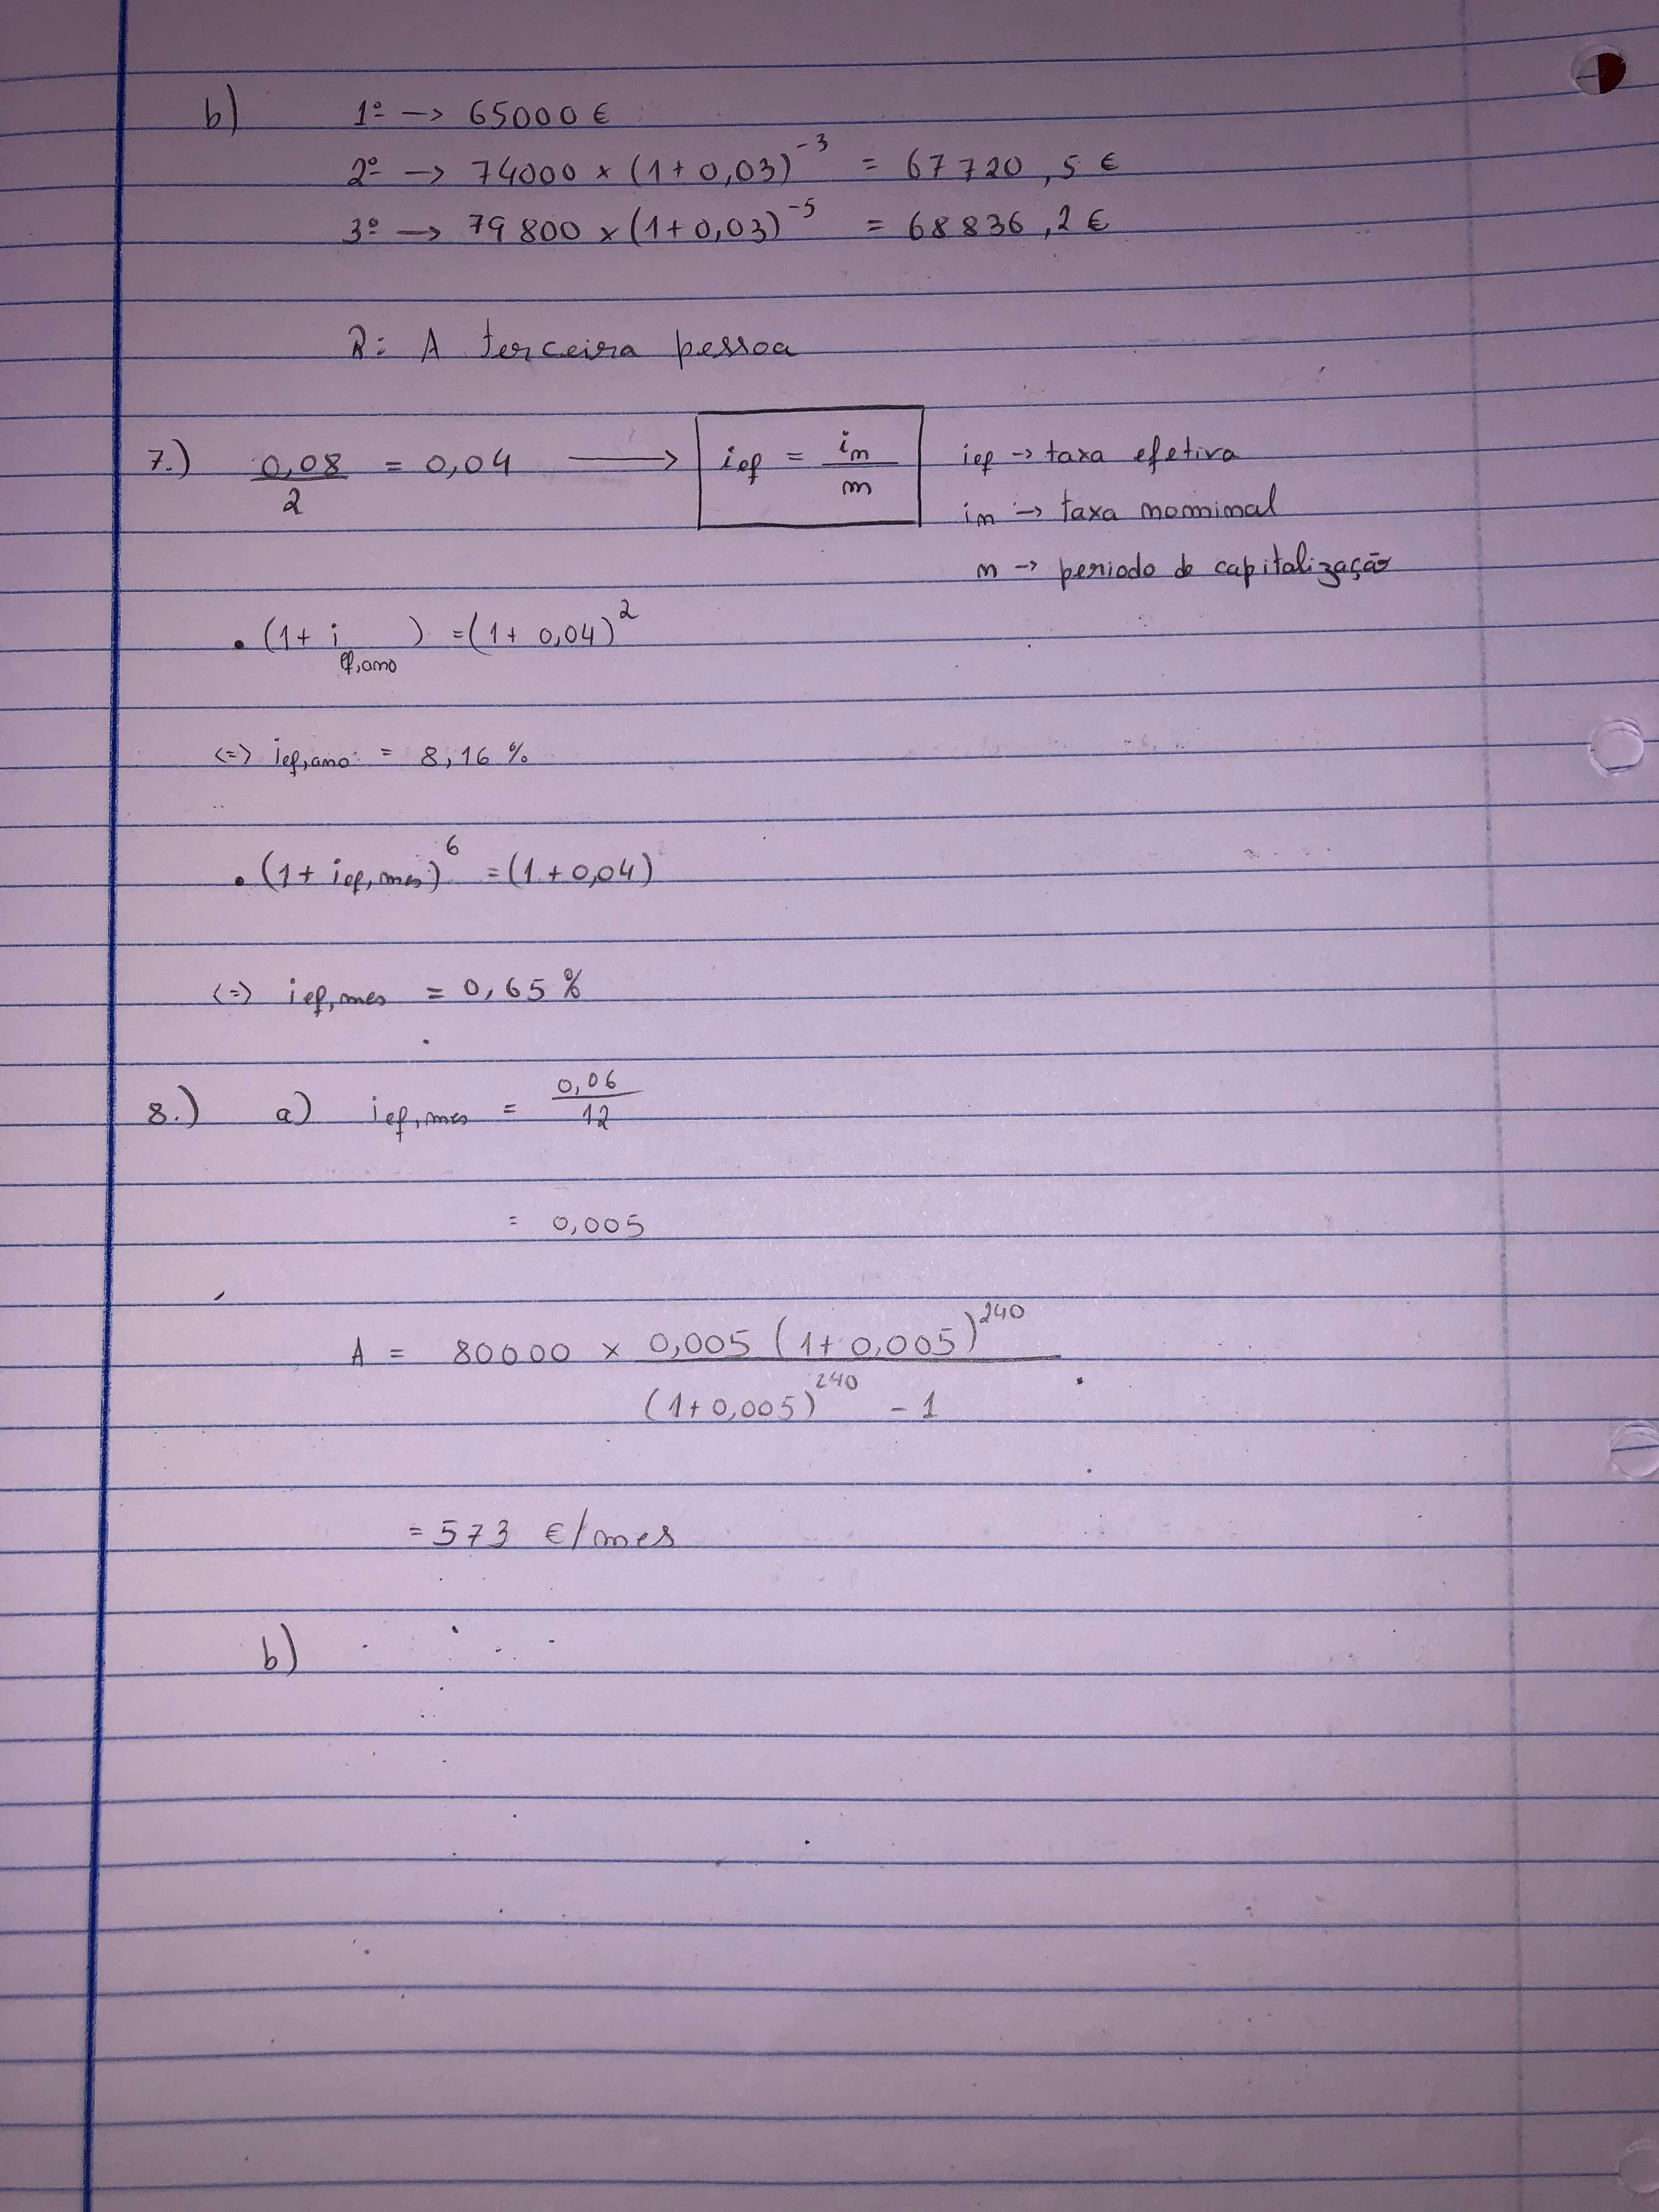 b) 1º -> 65000 €
2º -> 74000 × (1+0,03)^-3 = 67720,5 €
3º -> 79800 × (1+0,03)^-5 = 68836,2 €
R: A terceira pessoa
7.) 0,08/2 = 0,04 → ief = in/m ief -> taxa efetiva
in -> taxa nominal
m -> periodo de capitalização
• (1+ i ef,ano) = (1+ 0,04)^2
<=> ief,ano = 8,16 %
• (1+ ief,mes)^6 = (1+0,04)
<=> ief,mes = 0,65 %
8.) a) ief,mes = 0,06/12
= 0,005
A = 80000 × 0,005 (1+0,005)^240 / (1+0,005)^240 - 1
= 573 €/mes
b)